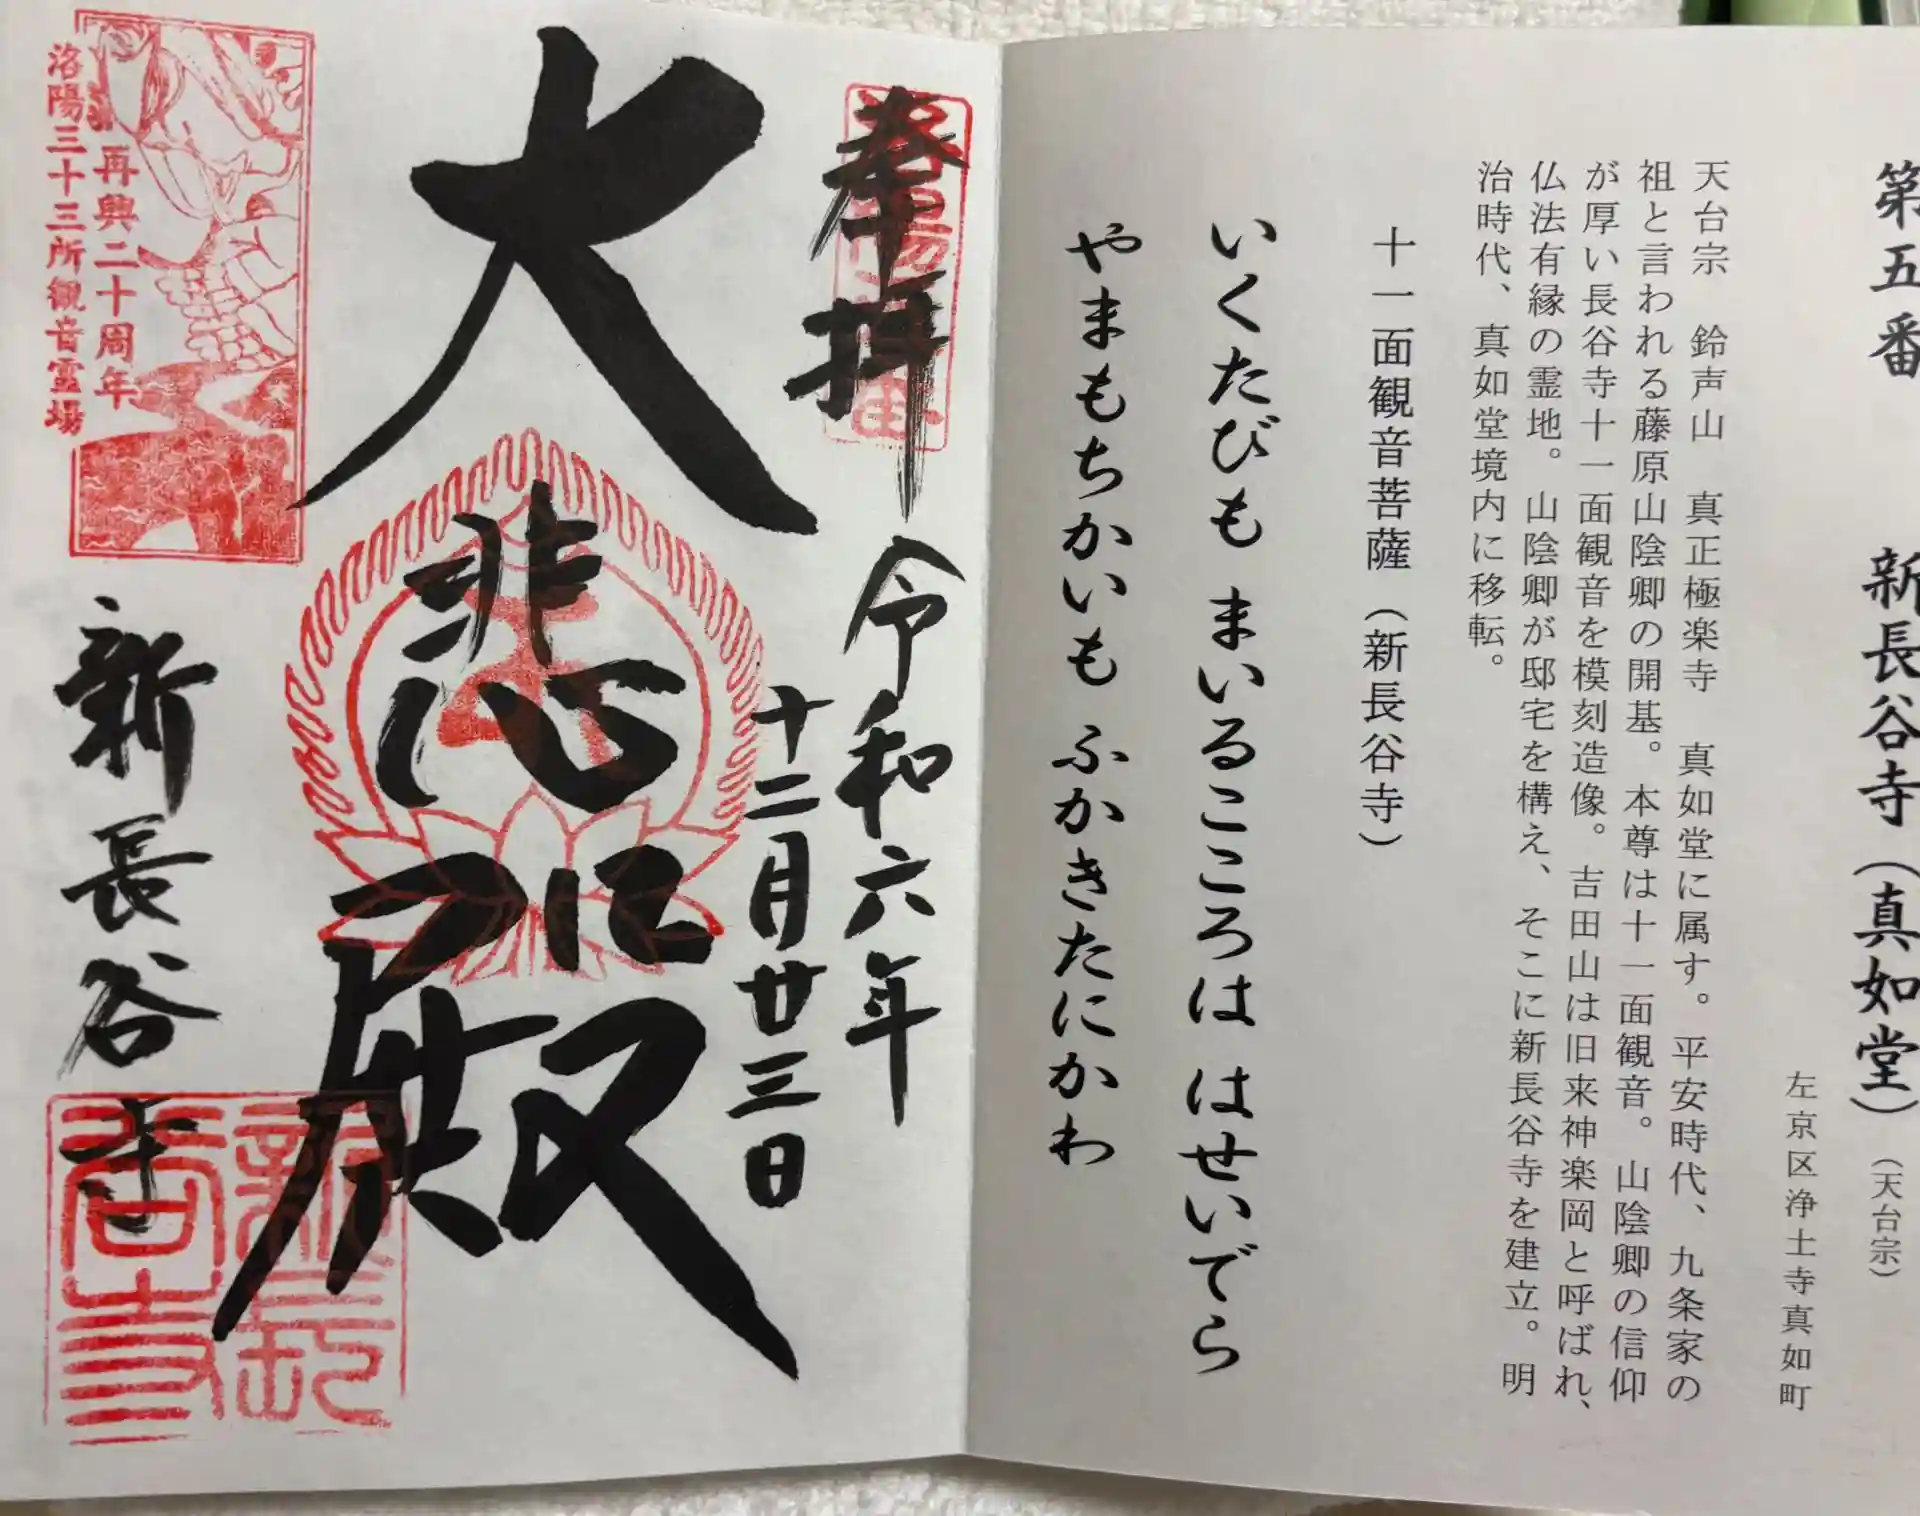 第五番　新長谷寺（真如堂）（天台宗）
左京区浄土寺真如町
天台宗　鈴声山　真正極楽寺　真如堂に属す。平安時代、九条家の
祖と言われる藤原山陰卿の開基。本尊は十一面観音。山陰卿の信仰
が厚い長谷寺十一面観音を模刻造像。吉田山は旧来神楽岡と呼ばれ、
仏法有縁の霊地。山陰卿が邸宅を構え、そこに新長谷寺を建立。明
治時代、真如堂境内に移転。
十一面観音菩薩（新長谷寺）
いくたびも まいるこころは はせいでら
やまもちかいも ふかきたにかわ
奉拝
令和六年
十二月廿三日
大悲殿
新長谷寺
再興二十周年
洛陽三十三所観音霊場
新長
谷寺